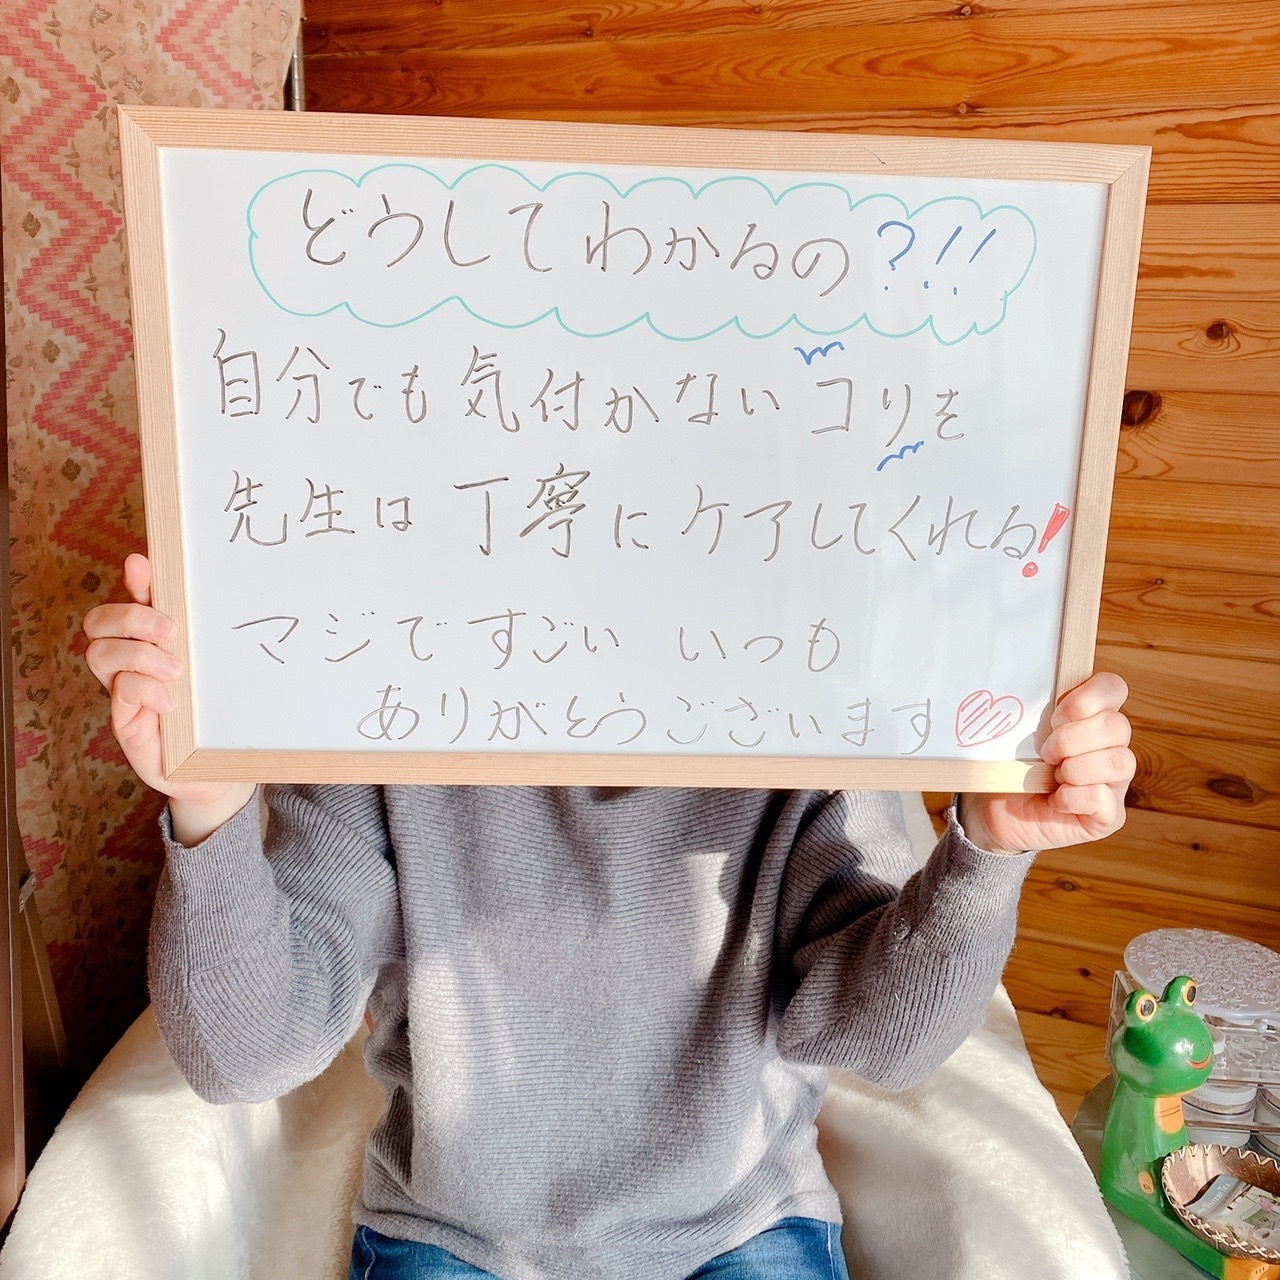 どうしてわかるの?!!
自分でも気付かないコリを
先生は丁寧にケアしてくれる!
マジですごい いつも
ありがとうございます♡